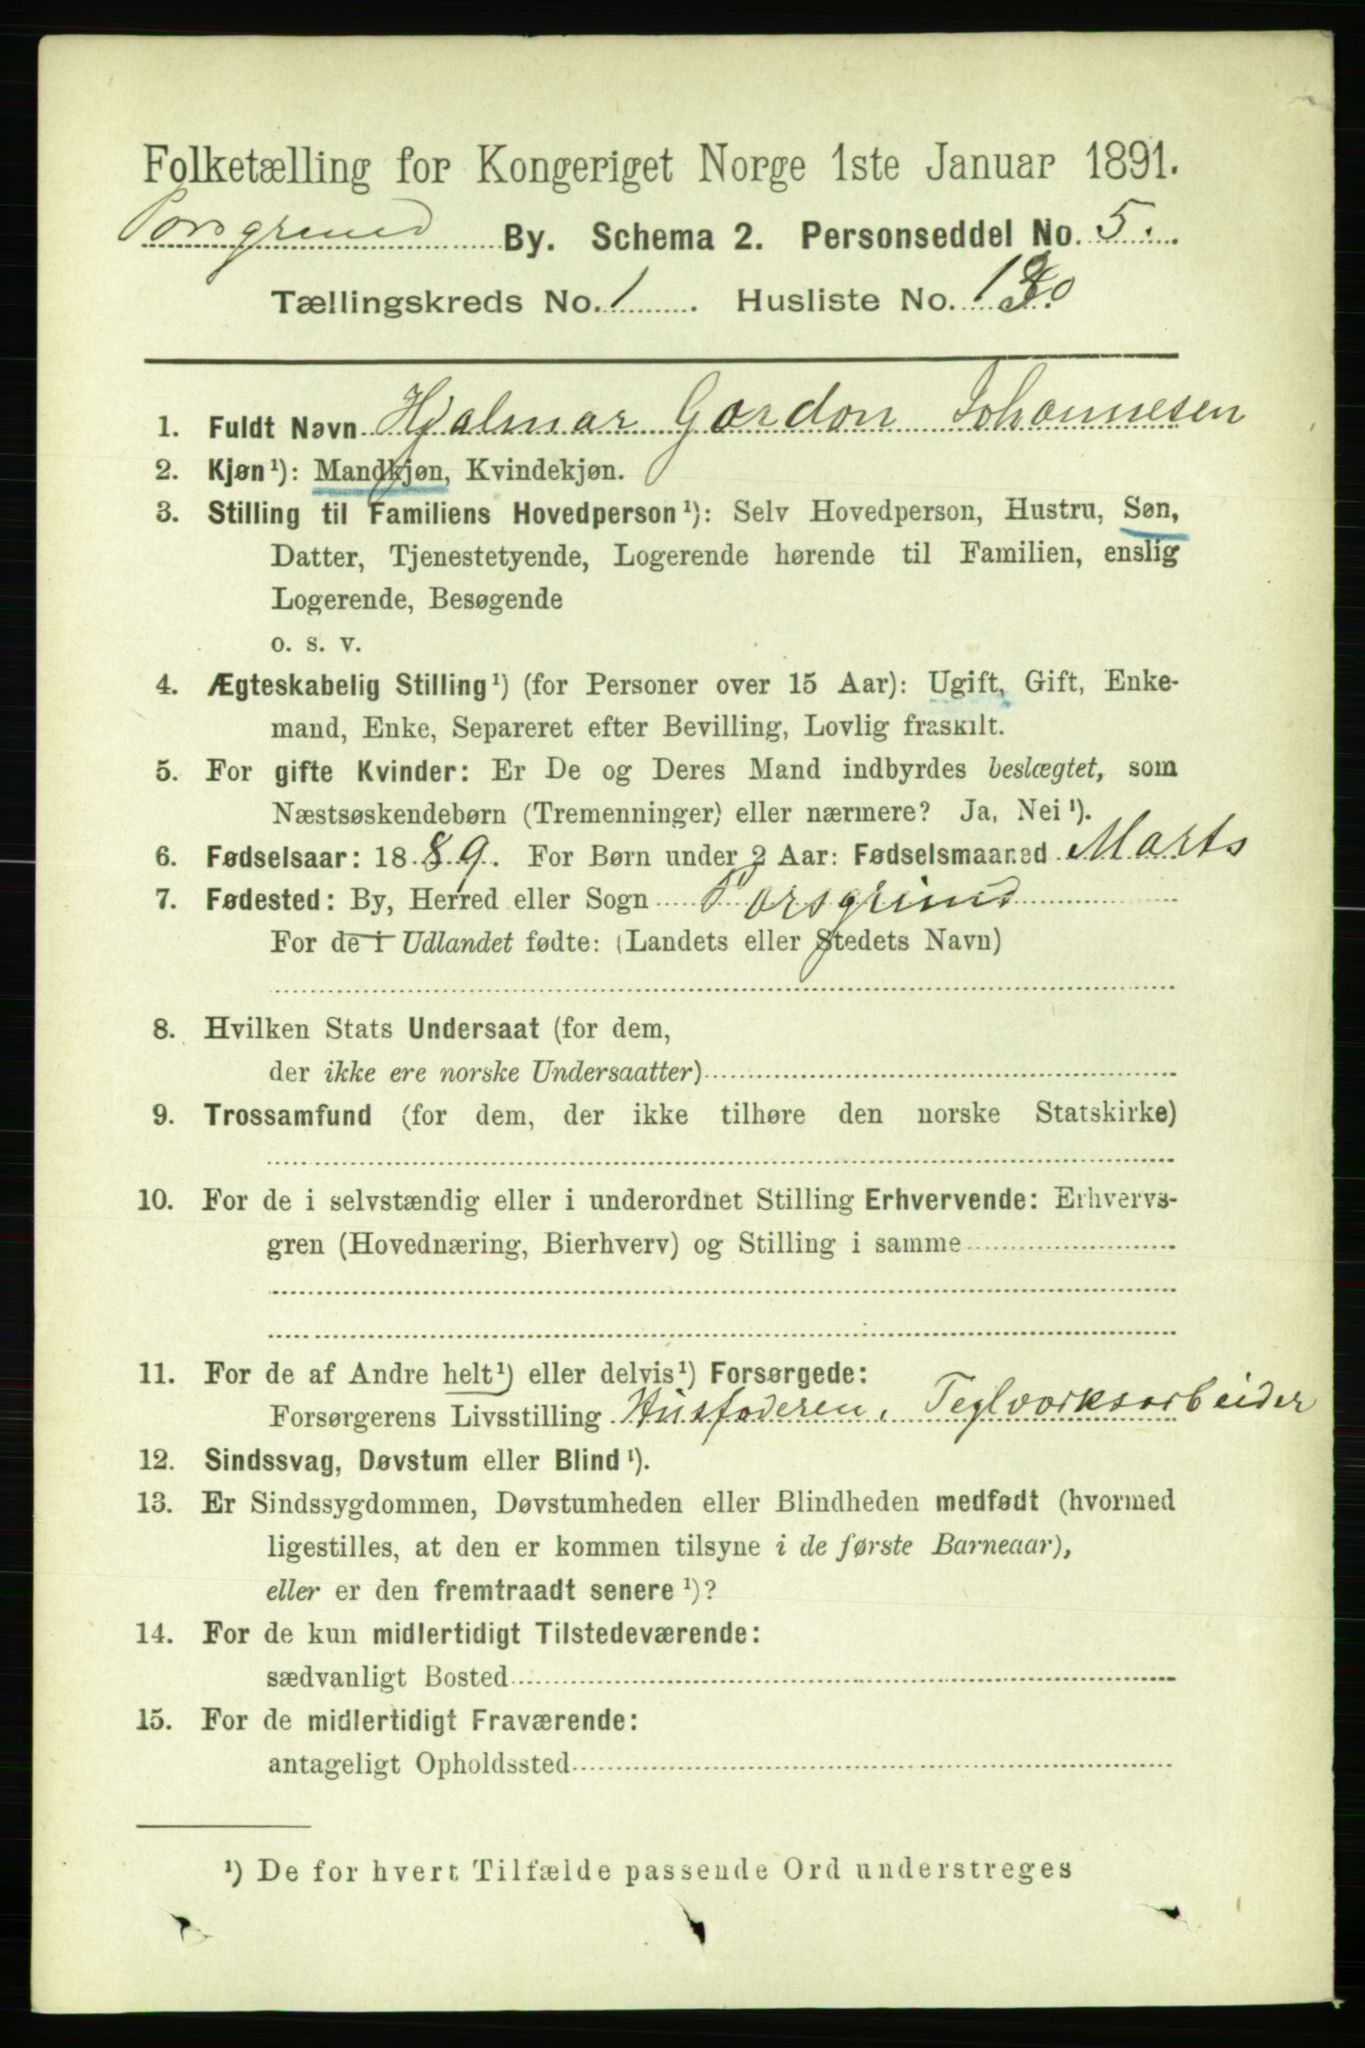 Folketælling for Kongeriget Norge 1ste Januar 1891.
Porsgrund By. Schema 2. Personseddel No. 5.
Tællingskreds No. 1. Husliste No.
1. Fuldt Navn Hjalmar Gordon Johannesen
2. Kjøn¹): Mandkjøn, Kvindekjøn.
3. Stilling til Familiens Hovedperson¹): Selv Hovedperson, Hustru, Søn,
Datter, Tjenestetyende, Logerende hørende til Familien, enslig
Logerende, Besøgende
o. s. v.
4. Ægteskabelig Stilling¹) (for Personer over 15 Aar): Ugift, Gift, Enke-
mand, Enke, Separeret efter Bevilling, Lovlig fraskilt.
5. For gifte Kvinder: Er De og Deres Mand indbyrdes beslægtet, som
Næstsøskendebørn (Tremenninger) eller nærmere? Ja, Nei¹).
6. Fødselsaar: 1889. For Børn under 2 Aar: Fødselsmaaned Marts
7. Fødested: By, Herred eller Sogn Porsgrund
For de i Udlandet fødte: (Landets eller Stedets Navn)
8. Hvilken Stats Undersaat (for dem,
der ikke ere norske Undersaatter)
9. Trossamfund (for dem, der ikke tilhøre den norske Statskirke)
10. For de i selvstændig eller i underordnet Stilling Erhvervende: Erhvervs-
gren (Hovednæring, Bierhverv) og Stilling i samme
11. For de af Andre helt¹) eller delvis¹) Forsørgede:
Forsørgerens Livsstilling Husfaderen, Teglværksarbeider
12. Sindssvag, Døvstum eller Blind¹).
13. Er Sindssygdommen, Døvstumheden eller Blindheden medfødt (hvormed
ligestilles, at den er kommen tilsyne i de første Barneaar),
eller er den fremtraadt senere¹)?
14. For de kun midlertidigt Tilstedeværende:
sædvanligt Bosted
15. For de midlertidigt Fraværende:
antageligt Opholdssted
¹) De for hvert Tilfælde passende Ord understreges